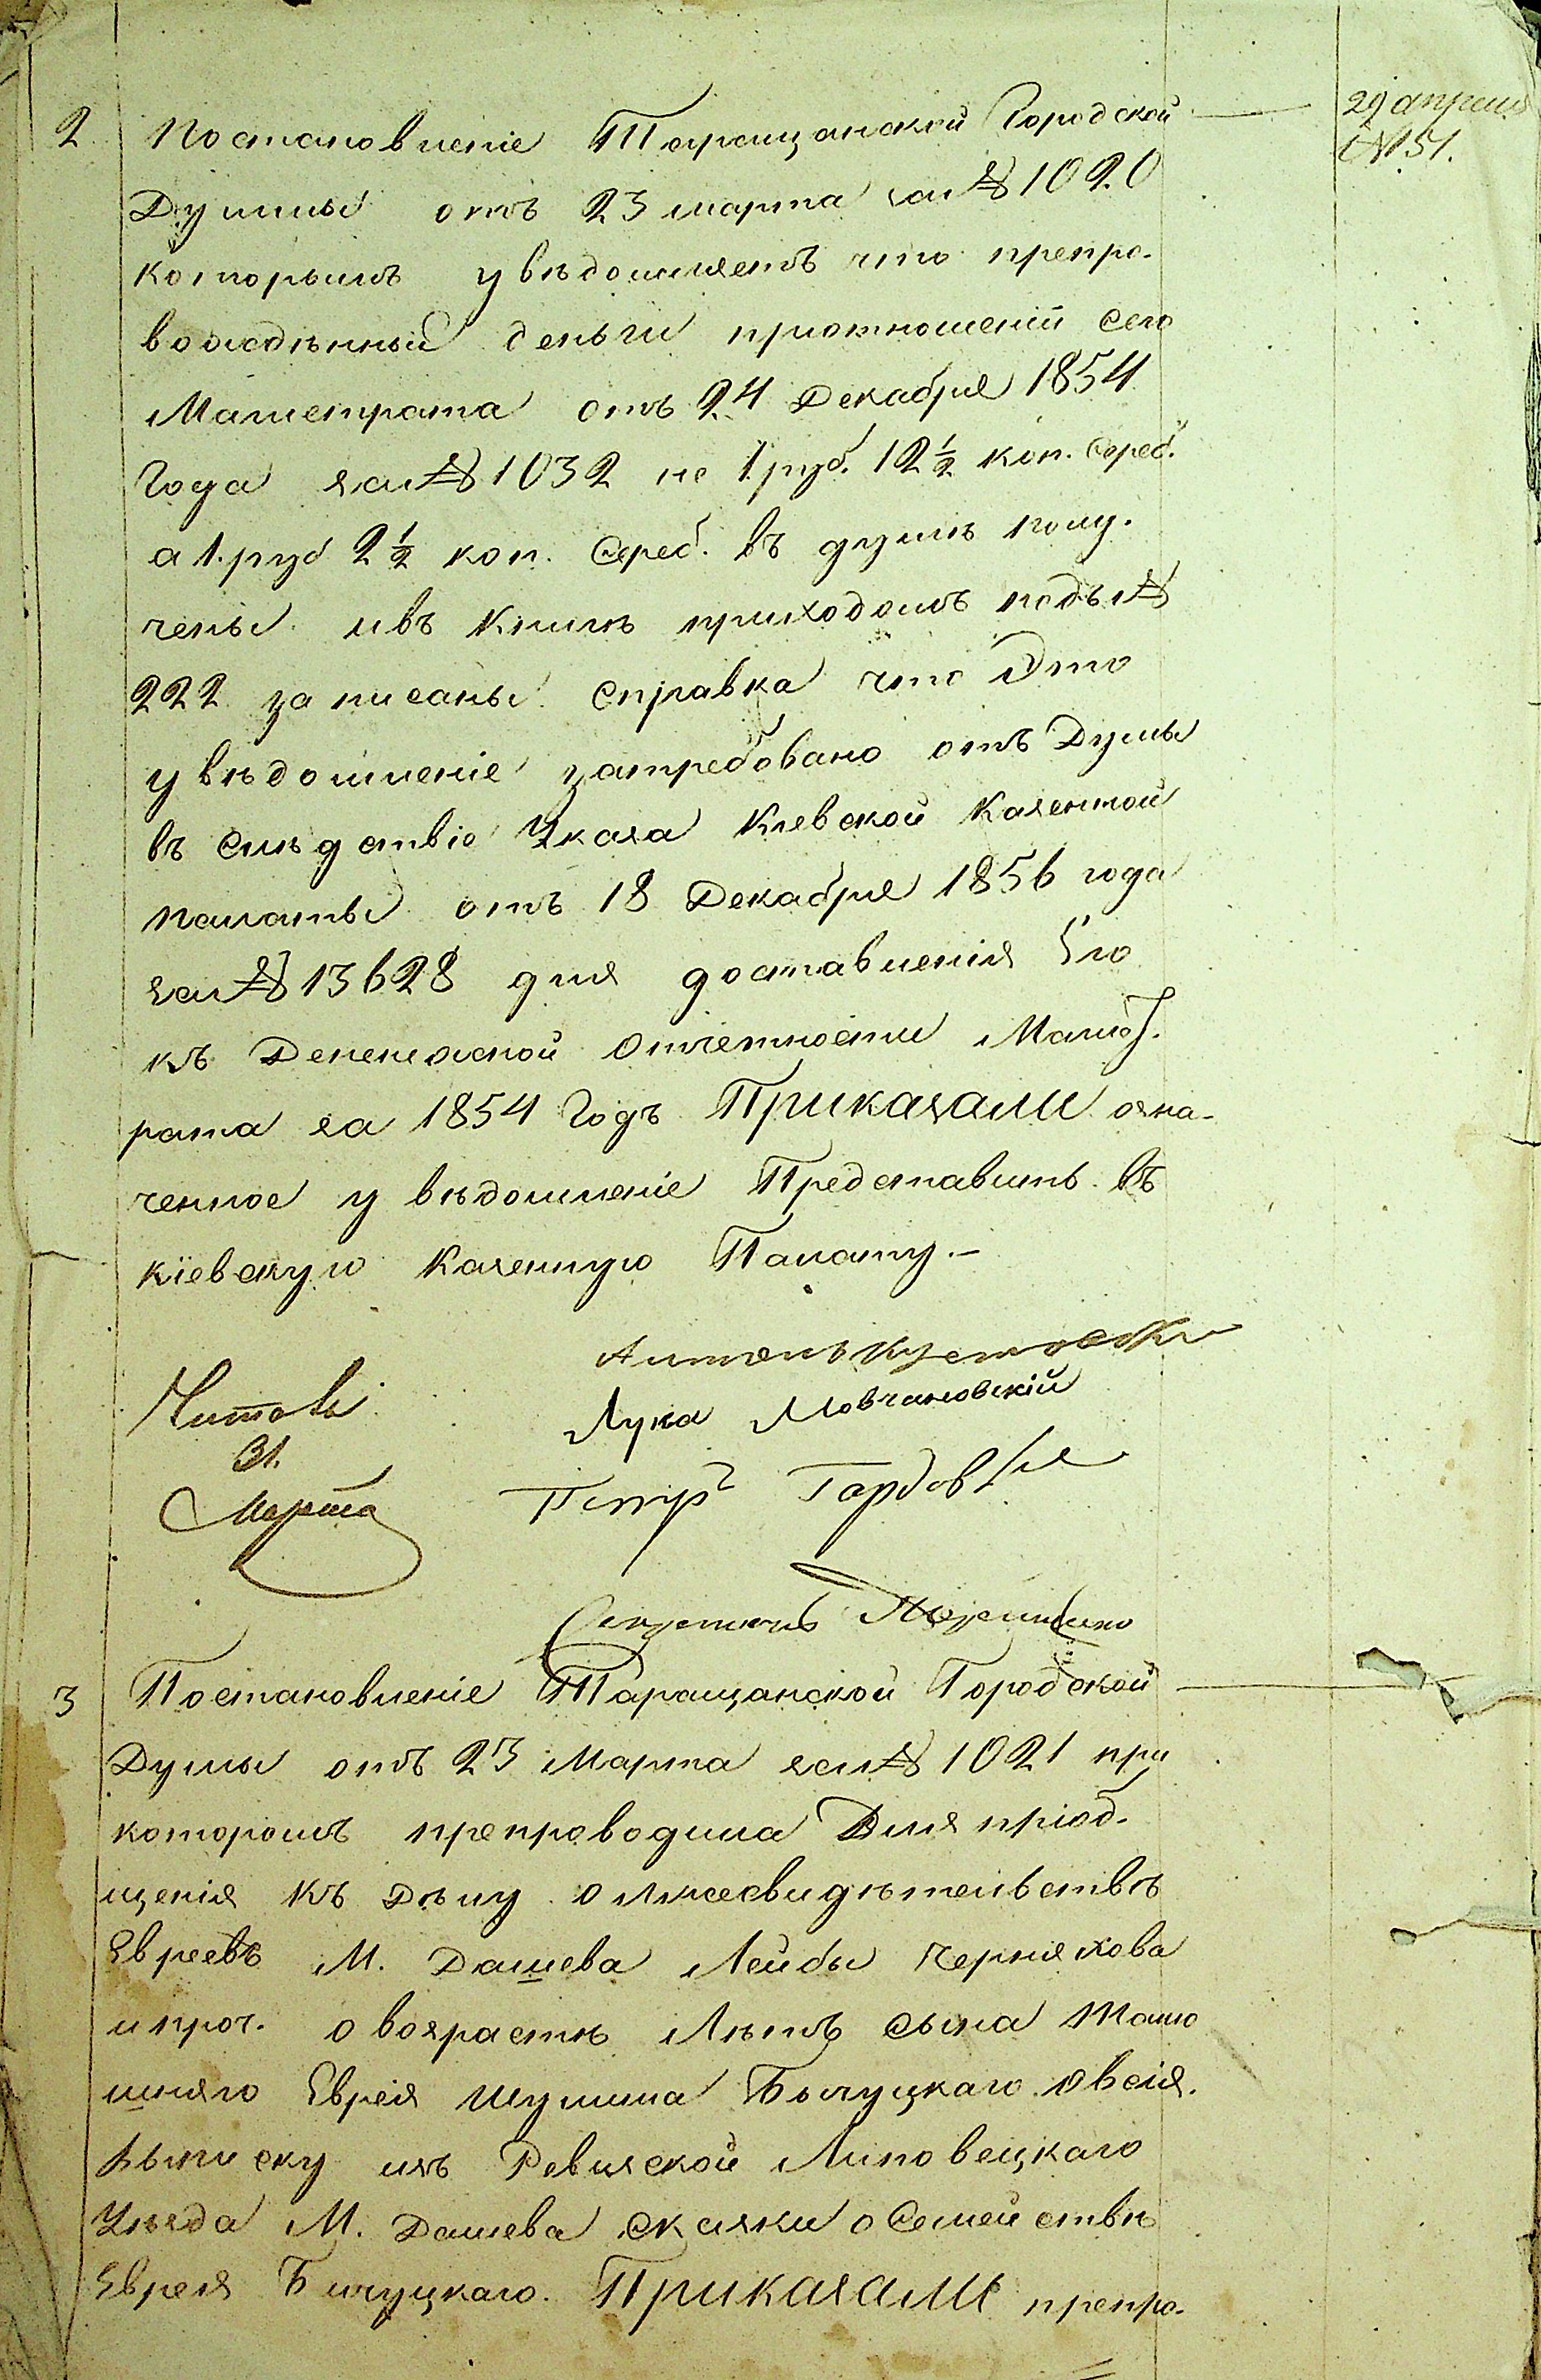 29 апреля
№ 51.
2 Постановленіе Таращанской Городской
Думмы отъ 23 марта за № 1020
которымъ увѣдомляетъ что препро-
вожденный деньги приотношеній сего
Магистрата отъ 24 Декабря 1854
Года за № 1032 не 1 руб. 12 ½ коп. сереб.
а 1. руб 2 ½ коп. Сереб. въ думѣ полу-
чены ивъ книгѣ приходомъ подъ №
222 записаны. Справка что Это
увѣдомленіе затребовано отъ Думы
въ слѣдствіе Указа Кіевской Казенной
палаты отъ 18 Декабря 1856 года
за № 13628 для доставленія Его
къ Денежной отчетности Магист-
рата за 1854 Годъ Приказали озна-
ченное увѣдомленіе Представить въ
кіевскую Казенную Палату.–
Лука Мовчановскій
Читалъ
31.
Марта
Петръ
Секретарь
3 Постановленіе Таращанской Городской
Думы отъ 23 Марта за № 1021 при
которомъ препроводила Для пріоб-
щенія къ дѣлу о лжесвидѣтельствѣ
Евреевъ М. Дашева Лейбы Черняхова
ипроч. о возрастѣ Лѣтъ сына Тамо
шняго Еврея Шулима Бычуцкаго Овсія.
выписку изъ Ревизской Липовецкаго
Уѣзда М. Дашева сказки о Семействѣ
Еврея Бичуцкаго. Приказали препро-